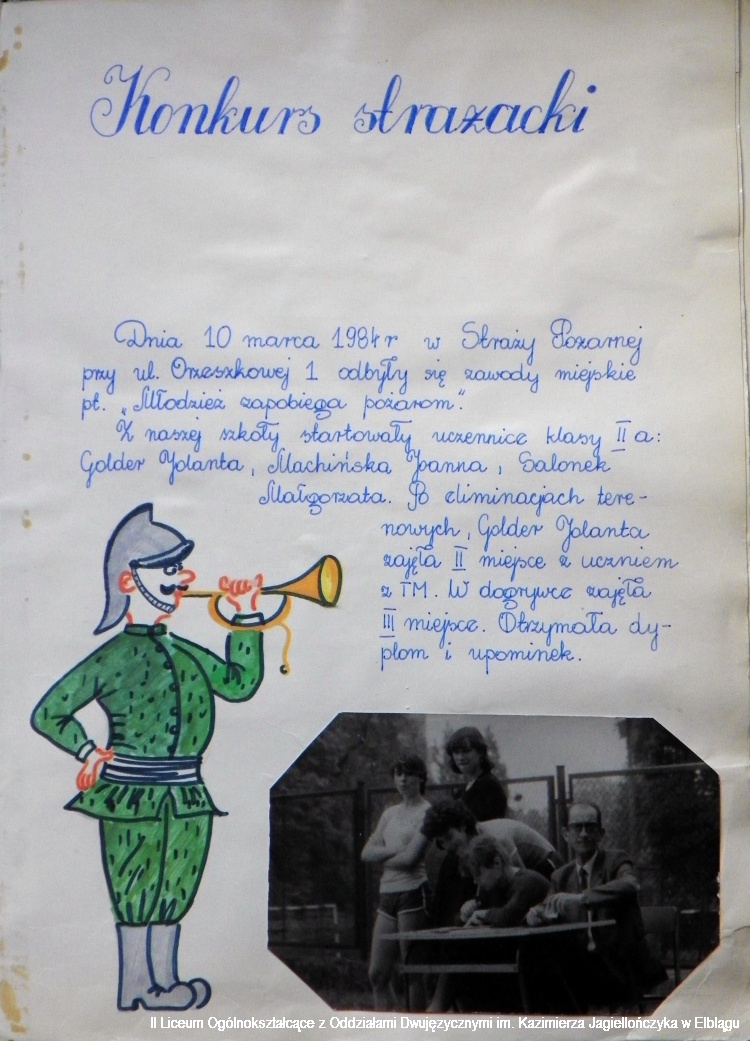 Konkurs strażacki
Dnia 10 marca 1984r w Straży Pożarnej
przy ul. Orzeszkowej 1 odbyły się zawody miejskie
pt. „Młodzież zapobiega pożarom".
Z naszej szkoły startowały uczennice klasy II a:
Golder Jolanta, Machińska Joanna, Salonek
Małgorzata. Po eliminacjach tere-
nowych, Golder Jolanta
zajęła II miejsce z uczniem
z TM. W dogrywce zajęła
III miejsce. Otrzymała dy-
plom i upominek.
II Liceum Ogólnokształcące z Oddziałami Dwujęzycznymi im. Kazimierza Jagiellończyka w Elblągu